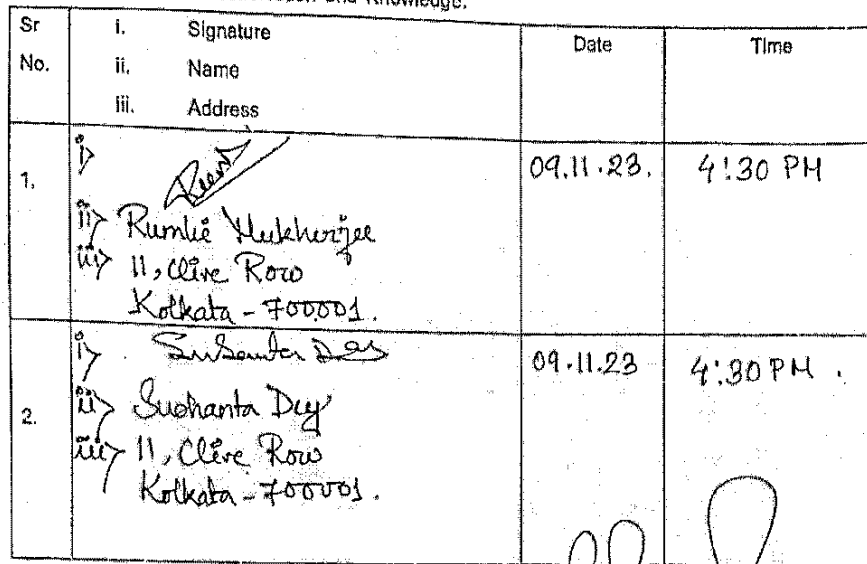 and Knowledge.
Sr No. i. Signature ii. Name iii. Address Date Time
1. i> 09.11.23. 4:30 PM
ii> Rumlie Mukherjee
iii> 11, Clive Row
Kolkata - 700001.
2. i> 09.11.23 4:30 PM .
ii> Sushanta Dey
iii> 11, Clive Row
Kolkata - 700001.